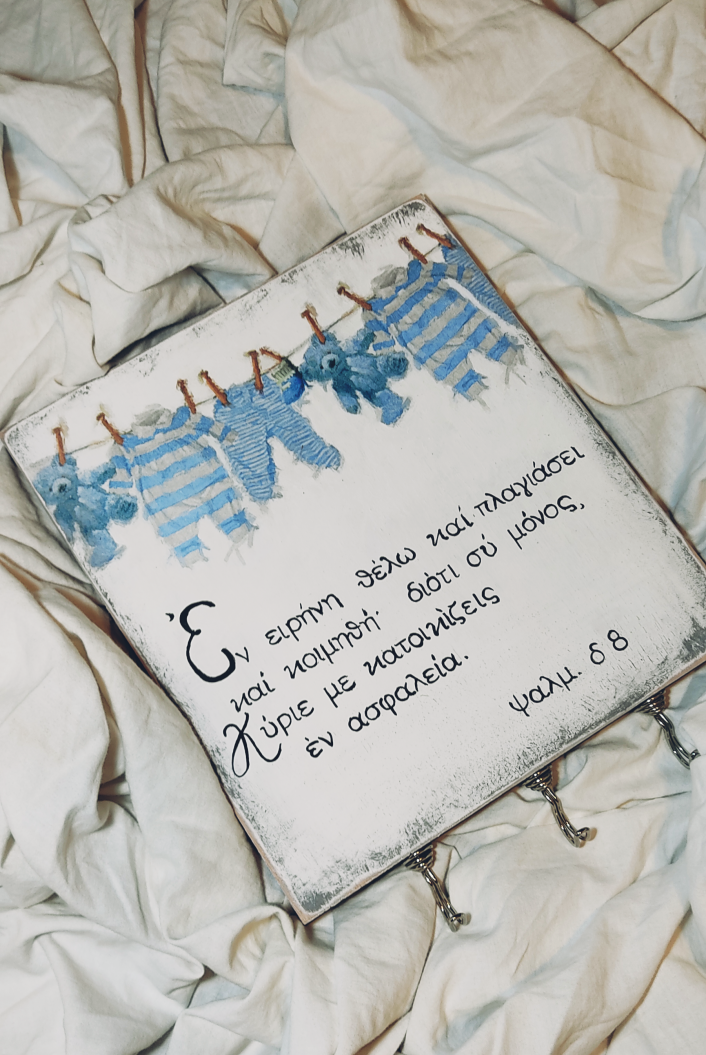 Ἐν ειρήνη θέλω καί πλαγιάσει
καί κοιμηθή· διότι σύ μόνος,
Κύριε με κατοικίζεις
ἐν ασφαλεία.
ψαλμ. δ 8